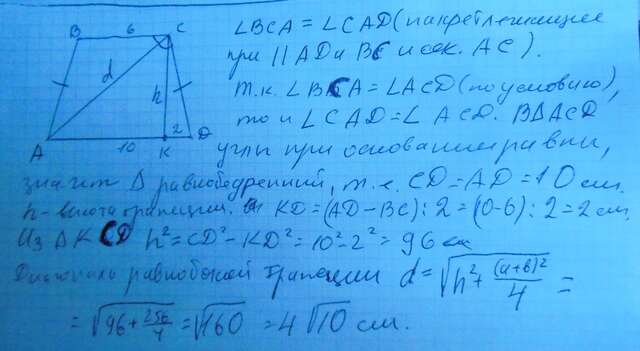 B 6 C
d
h
2
A 10 K D
∠BCA = ∠CAD (накрест лежащие
при || AD и BC и сек. AC).
т.к. ∠BCA = ∠ACD (по условию),
то и ∠CAD = ∠ACD. В ΔACD
углы при основании равны,
значит Δ равнобедренный, т.е. CD = AD = 10 см.
h - высота трапеции. KD = (AD - BC) : 2 = (10-6) : 2 = 2 см.
Из ΔKCD h² = CD² - KD² = 10² - 2² = 96 см
Диагональ равнобокой трапеции d = √(h² + (a+b)²/4) =
= √(96 + 256/4) = √160 = 4√10 см.